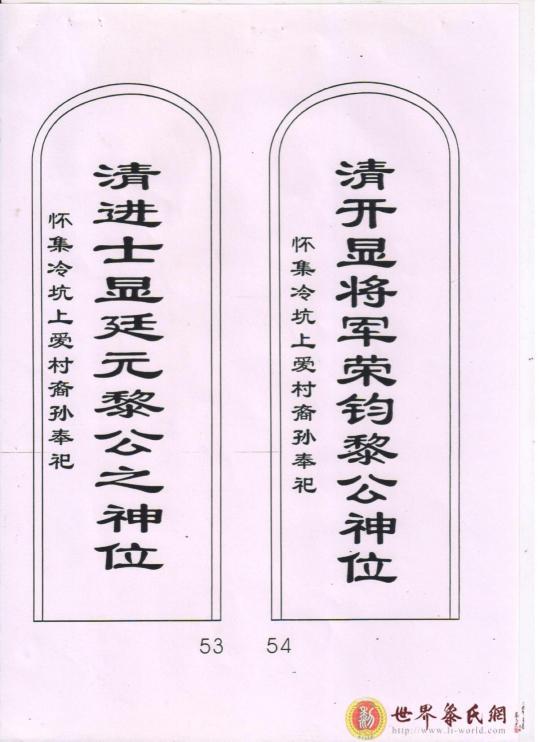 清进士显廷元黎公之神位
怀集冷坑上爱村裔孙奉祀
清开显将军荣钧黎公神位
怀集冷坑上爱村裔孙奉祀
53
54
世界黎氏網
http://www.li-world.com